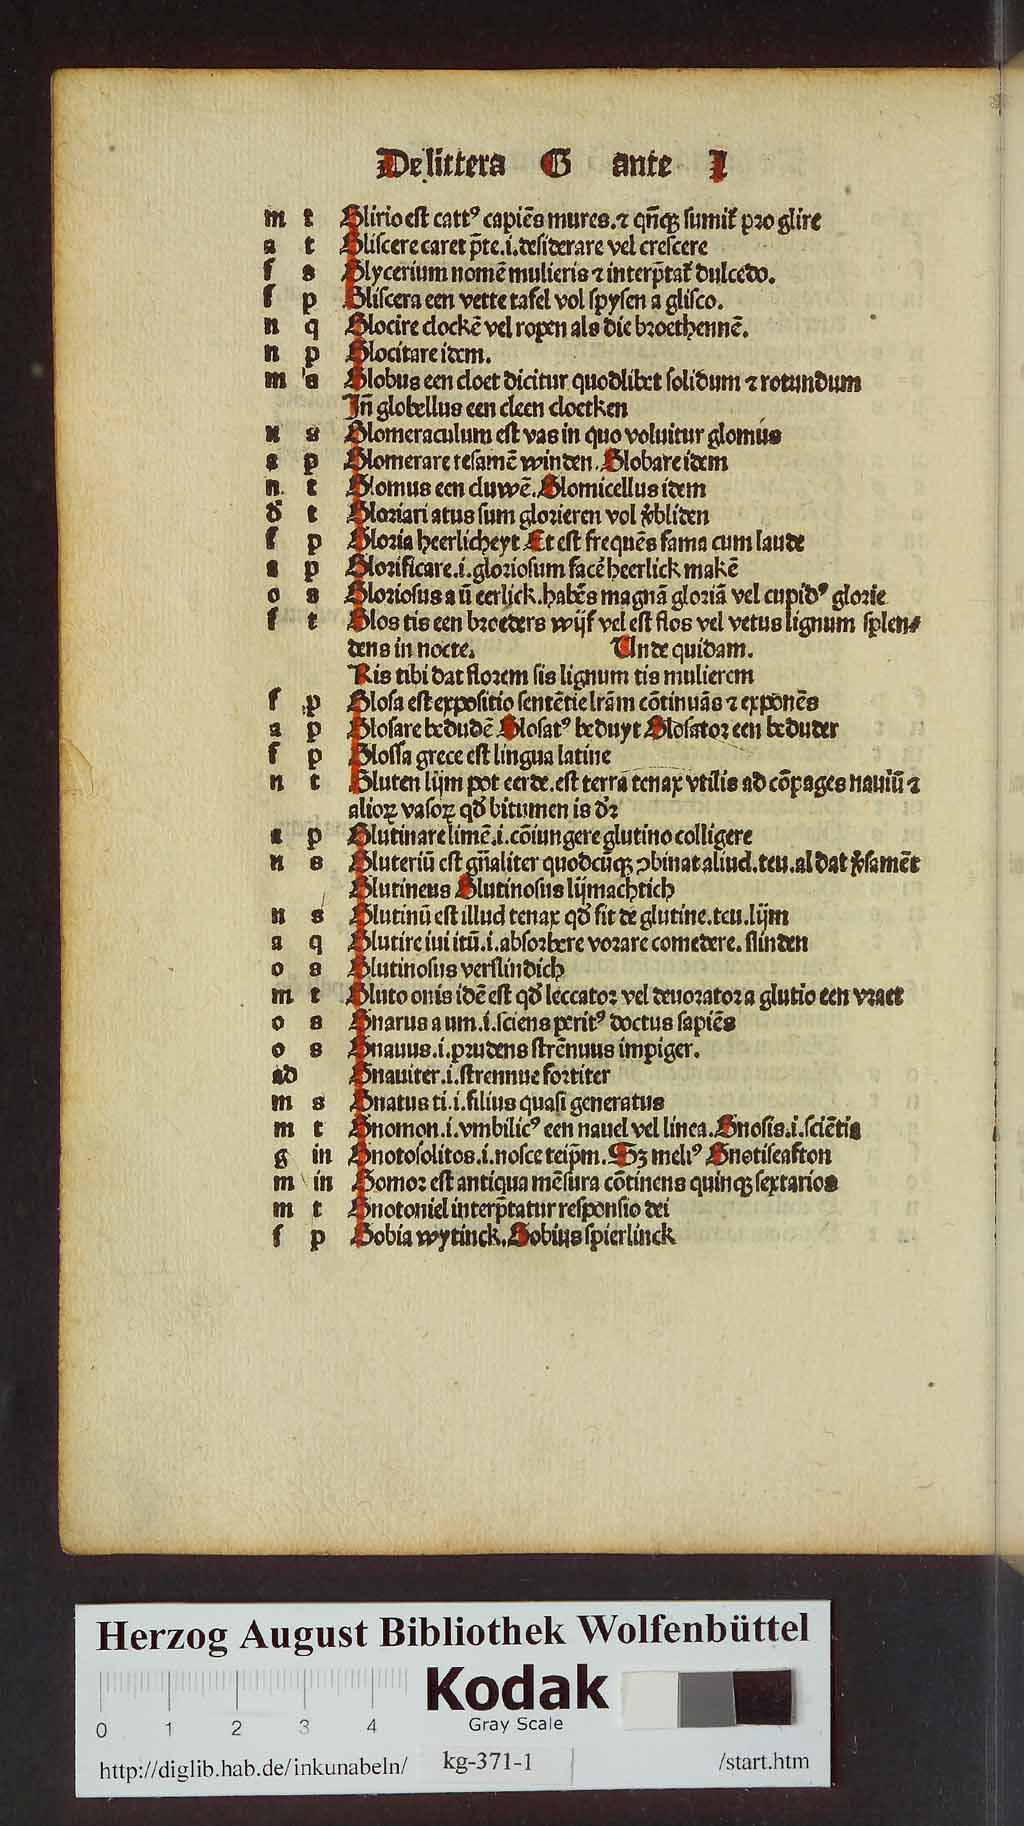 De littera G ante I
m t Glirio est catt⁹ capiēs mures. ⁊ qñqꝫ sumit̃ pro glire
a t Gliscere caret p̄te .i. desiderare vel crescere
f s Glycerium nomē mulieris ⁊ interp̄tat̃ dulcedo.
f p Gliscera een vette tafel vol spysen a glisco.
n q Glocire clockē vel ropen als die broethennē.
n p Glocitare idem.
m s Globus een cloet dicitur quodlibet solidum ⁊ rotundum
Jn̄ globellus een cleen cloetken
n s Glomeraculum est vas in quo voluitur glomus
a p Glomerare tesamē winden. Globare idem
n t Glomus een cluwē. Glomicellus idem
d t Gloriari atus sum glorieren vol v̄bliden
f p Gloria heerlicheyt Et est frequēs fama cum laude
a p Glorificare .i. gloriosum facē heerlick makē
o s Gloriosus a ū eerlick. habēs magnā gloriā vel cupid⁹ glorie
f t Glos tis een broeders wijf vel est flos vel vetus lignum splen⸗
dens in nocte. Unde quidam.
Ris tibi dat florem sis lignum tis mulierem
f p Glosa est expositio sentētie lr̄am cōtinuās ⁊ exponēs
a p Glosare bedudē Glosat⁹ beduyt Glosator een beduder
f p Glossa grece est lingua latine
n t Gluten lijm pot eerde. est terra tenax vtilis ad cōpages nauiū ⁊
alioꝝ vasoꝝ qd̄ bitumen is dꝛ
a p Glutinare limē .i. cōiungere glutino colligere
n s Gluteriū est gn̄aliter quodcūqꝫ ꝯbinat aliud. teu. al dat v̄samēt
Glutineus Glutinosus lijmachtich
n s Glutinū est illud tenax qd̄ fit de glutine. teu. lijm
a q Glutire iui itū .i. absorbere vorare comedere. slinden
o s Glutinosus verslindich
m t Gluto onis idē est qd̄ leccator vel deuorator a glutio een vraet
o s Gnarus a um .i. sciens perit⁹ doctus sapiēs
o s Gnauus .i. prudens strēnuus impiger.
ad Gnauiter .i. strennue fortiter
m s Gnatus ti .i. filius quasi generatus
m t Gnomon .i. vmbilic⁹ een nauel vel linea. Gnosis .i. sciētia
g in Gnotosolitos .i. nosce teip̄m. Sꝫ meli⁹ Gnotiseafton
m in Gomor est antiqua mēsura cōtinens quinqꝫ sextarios
m t Gnotoniel interp̄tatur responsio dei
f p Gobia wytinck. Gobius spierlinck
Herzog August Bibliothek Wolfenbüttel
0 1 2 3 4
Kodak
Gray Scale
http://diglib.hab.de/inkunabeln/ kg-371-1 /start.htm